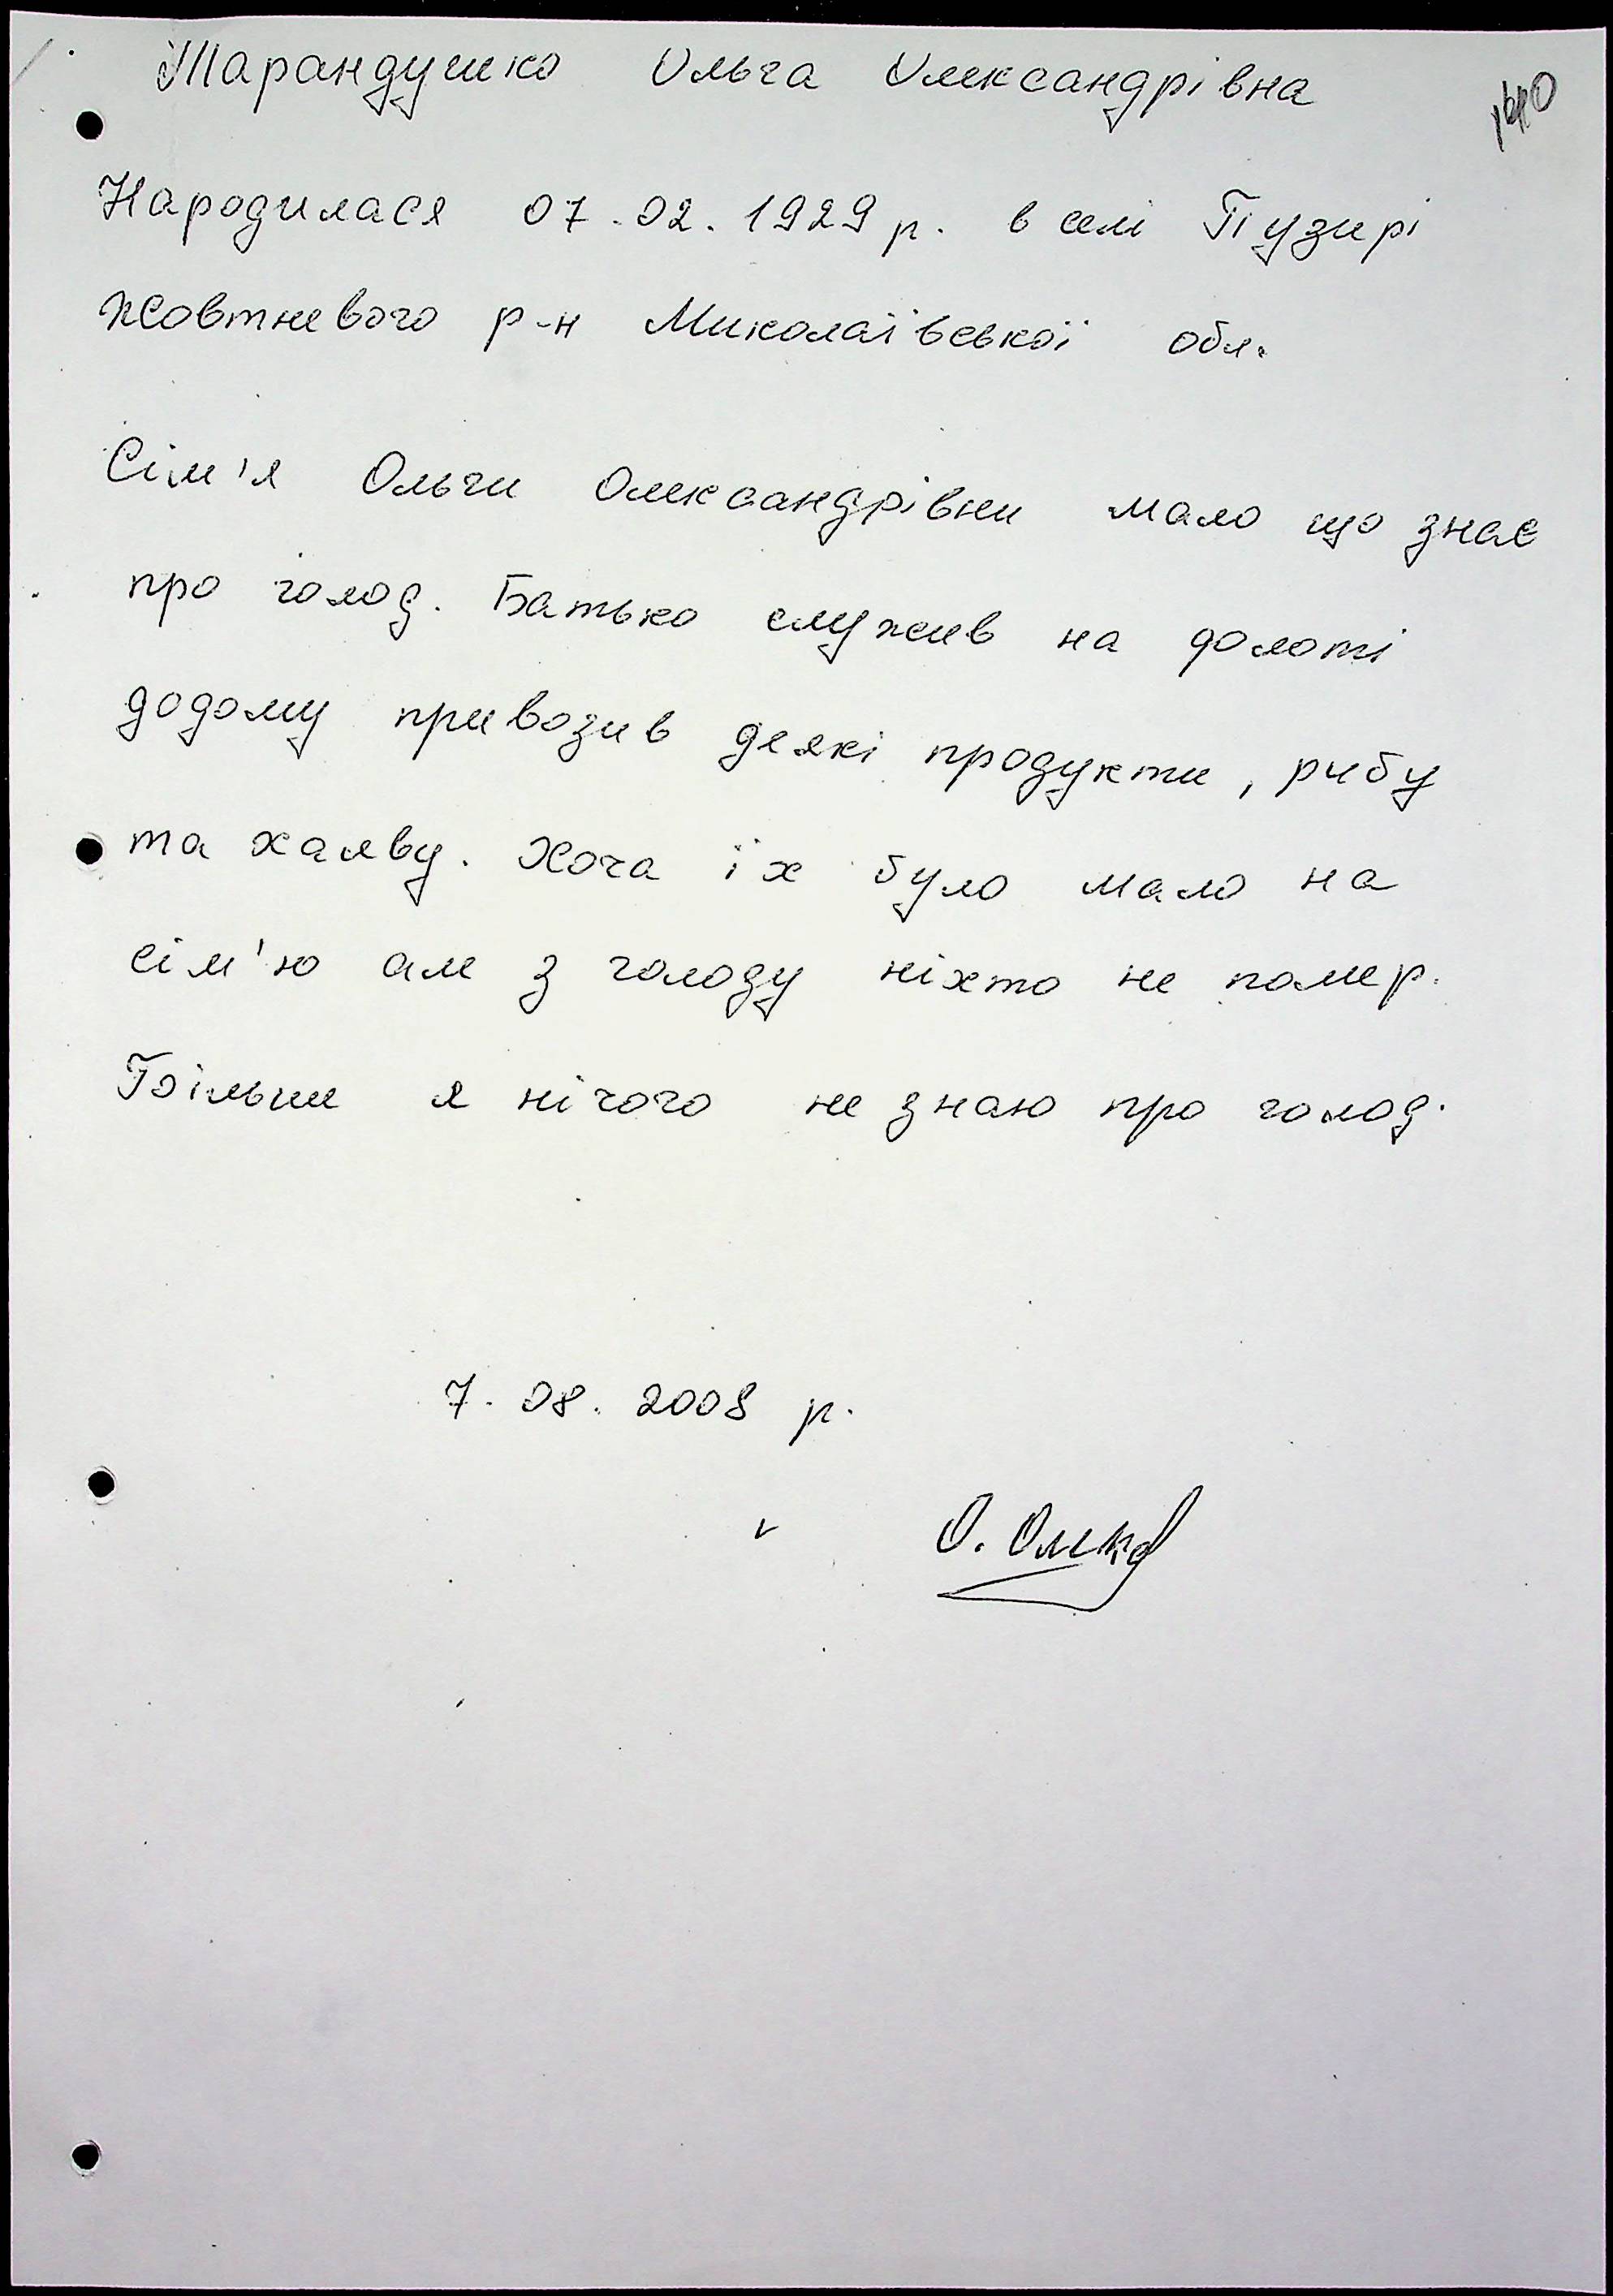 Тарандушко Ольга Олександрівна
Народилася 07.02.1929 р. в селі Пузирі
Жовтневого р-н Миколаївської обл.
Сім'я Ольги Олександрівни мало що знає
про голод. Батько служив на флоті
додому привозив деякі продукти, рибу
та халву. Хоча їх було мало на
сім'ю але з голоду ніхто не помер.
Більше я нічого не знаю про голод.
7.08.2008 р.